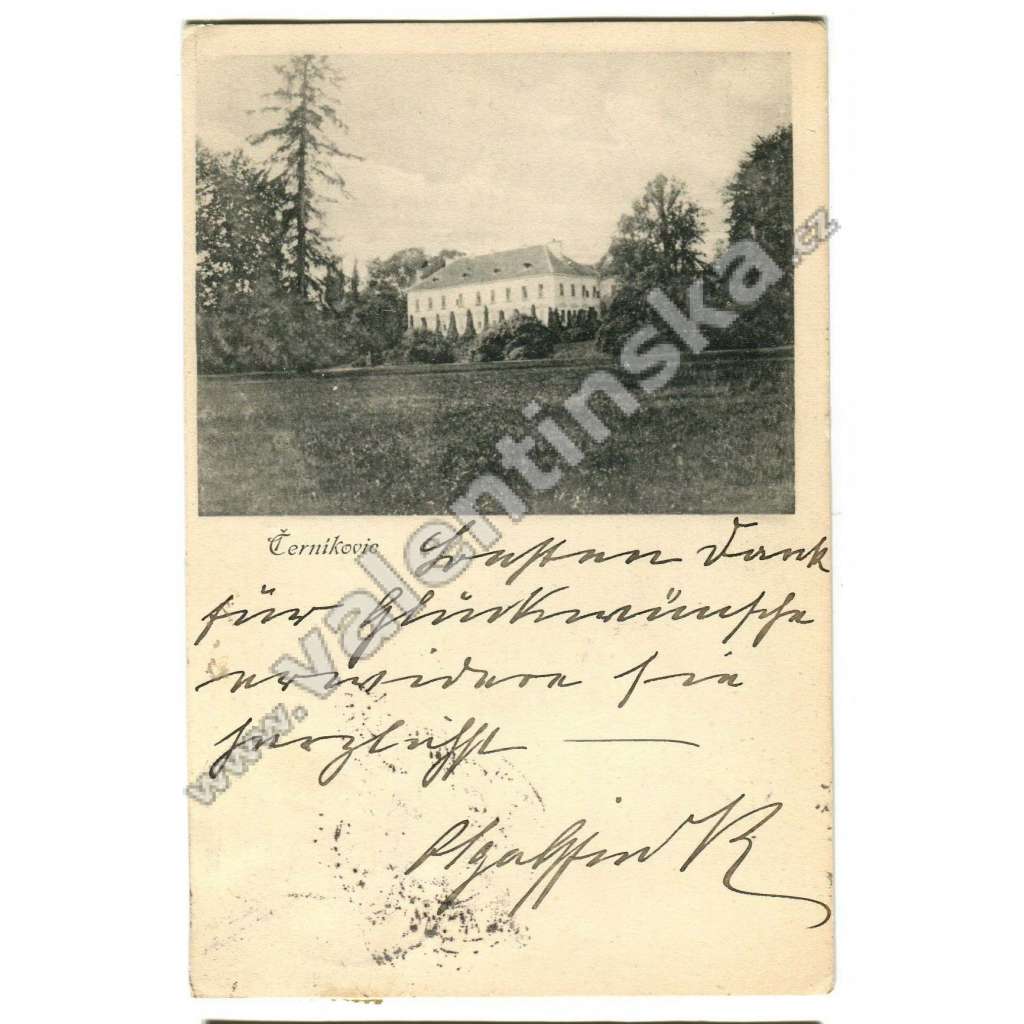 Černikovic Besten Dank
für Glückwünsche
erwidere sie
herzlichst —
www.valentinska.cz